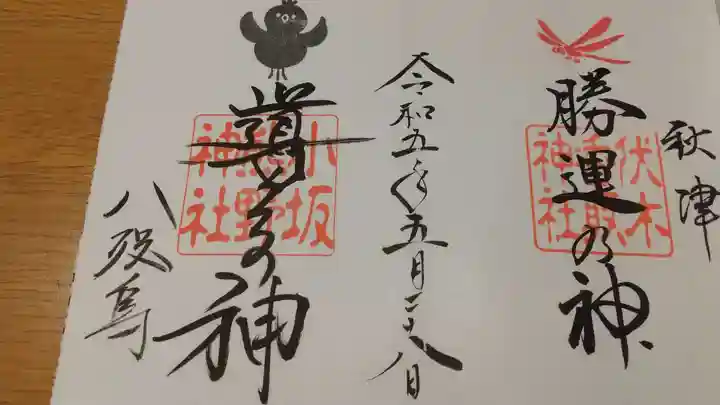 秋津
勝運の神
伏木
清嶽
神社
令和五年五月二十八日
導きの神
小坂
熊野
神社
八咫烏